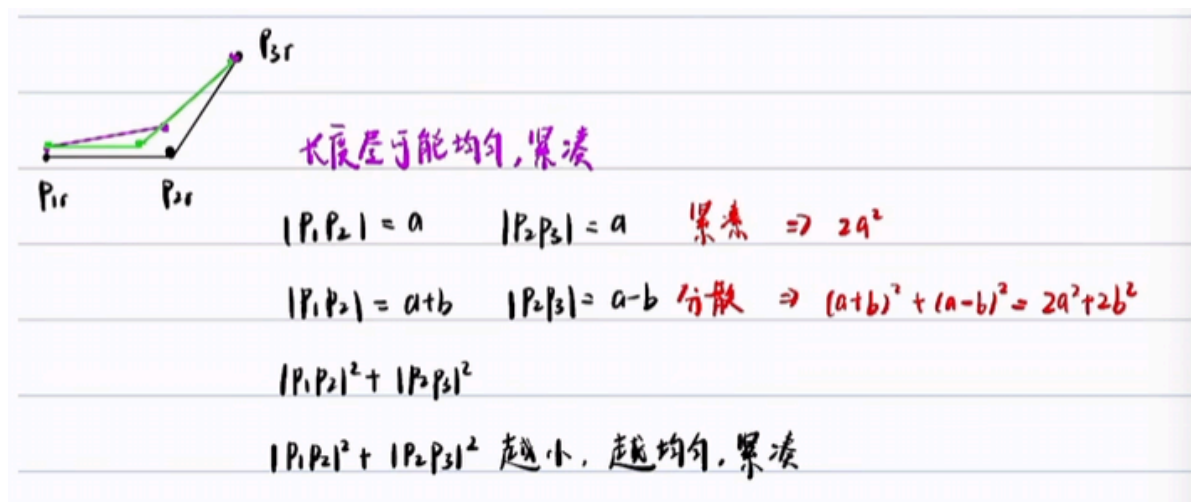 P3r
长度尽可能均匀,紧凑
P1r P2r
|P1P2| = a |P2P3| = a 紧凑 => 2a²
|P1P2| = a+b |P2P3| = a-b 分散 => (a+b)² + (a-b)² = 2a²+2b²
|P1P2|² + |P2P3|²
|P1P2|² + |P2P3|² 越小, 越均匀,紧凑